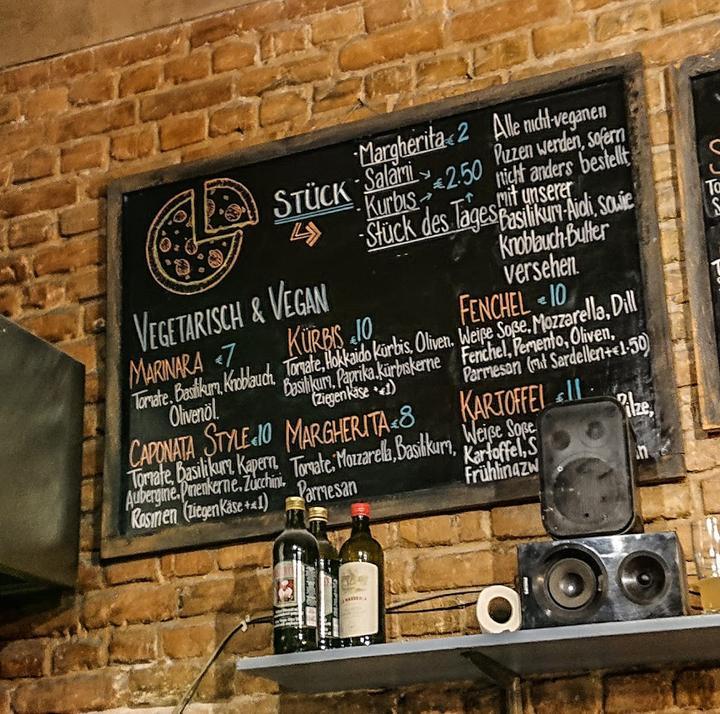 STÜCK
- Margherita €2
- Salami → €2.50
- Kürbis →
- Stück des Tages ↑
Alle nicht-veganen
Pizzen werden, sofern
nicht anders bestellt,
mit unserer
Basilikum-Aioli, sowie
Knoblauch-Butter
versehen.
VEGETARISCH & VEGAN
MARINARA €7
Tomate, Basilikum, Knoblauch,
Olivenöl.
CAPONATA STYLE €10
Tomate, Basilikum, Kapern,
Aubergine, Pinenkerne, Zucchini,
Rosinen (ziegenKäse +€1)
KÜRBIS €10
Tomate, Hokkaido Kürbis, Oliven,
Basilikum, Paprika, Kürbiskerne
(ziegenKäse +€1)
MARGHERITA €8
Tomate, Mozzarella, Basilikum,
Parmesan
FENCHEL €10
Weiße Soße, Mozzarella, Dill
Fenchel, Pemento, Oliven,
Parmesan (mit Sardellen +€1.50)
KARTOFFEL €11
Weiße Soße
Kartoffel,